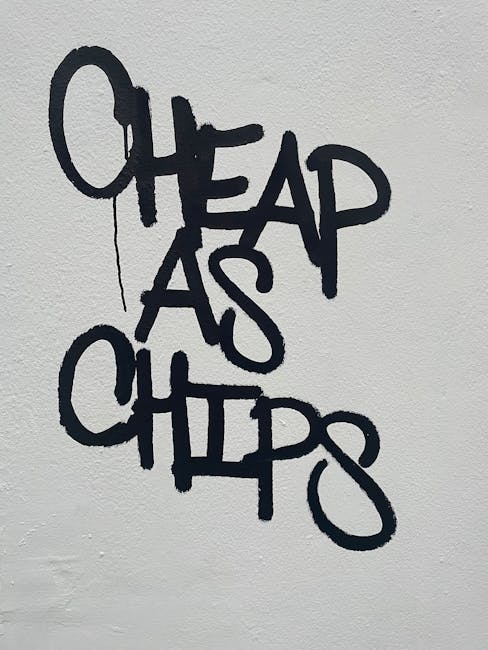 CHEAP
AS
CHIPS